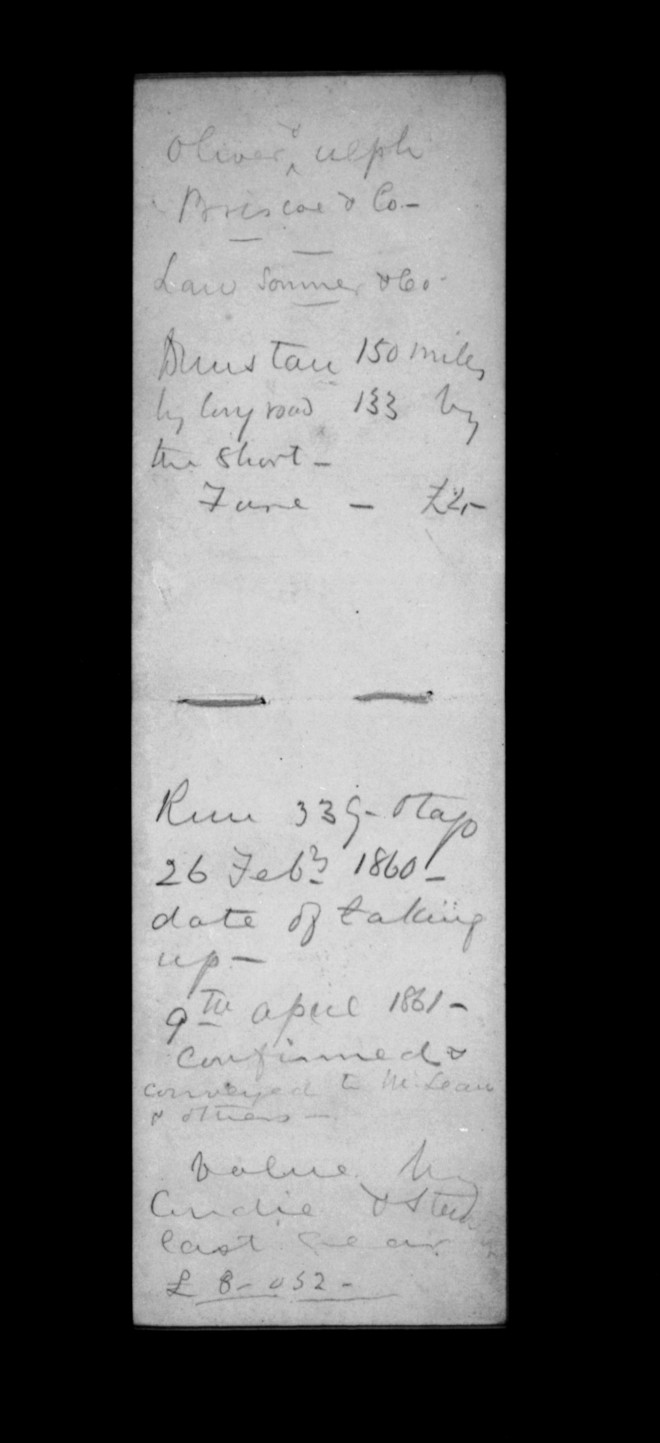 Oliver & Ulph
Briscoe & Co -
Law Somner & Co -
Dunstan 150 miles
by long road 133 by
the short -
Fare - £2,-
Run 339 - Otago
26 Feby 1860 -
date of taking
up -
9th april 1861 -
confirmed &
conveyed to McLean
& others -
value by
&
last year
£ 8-052-